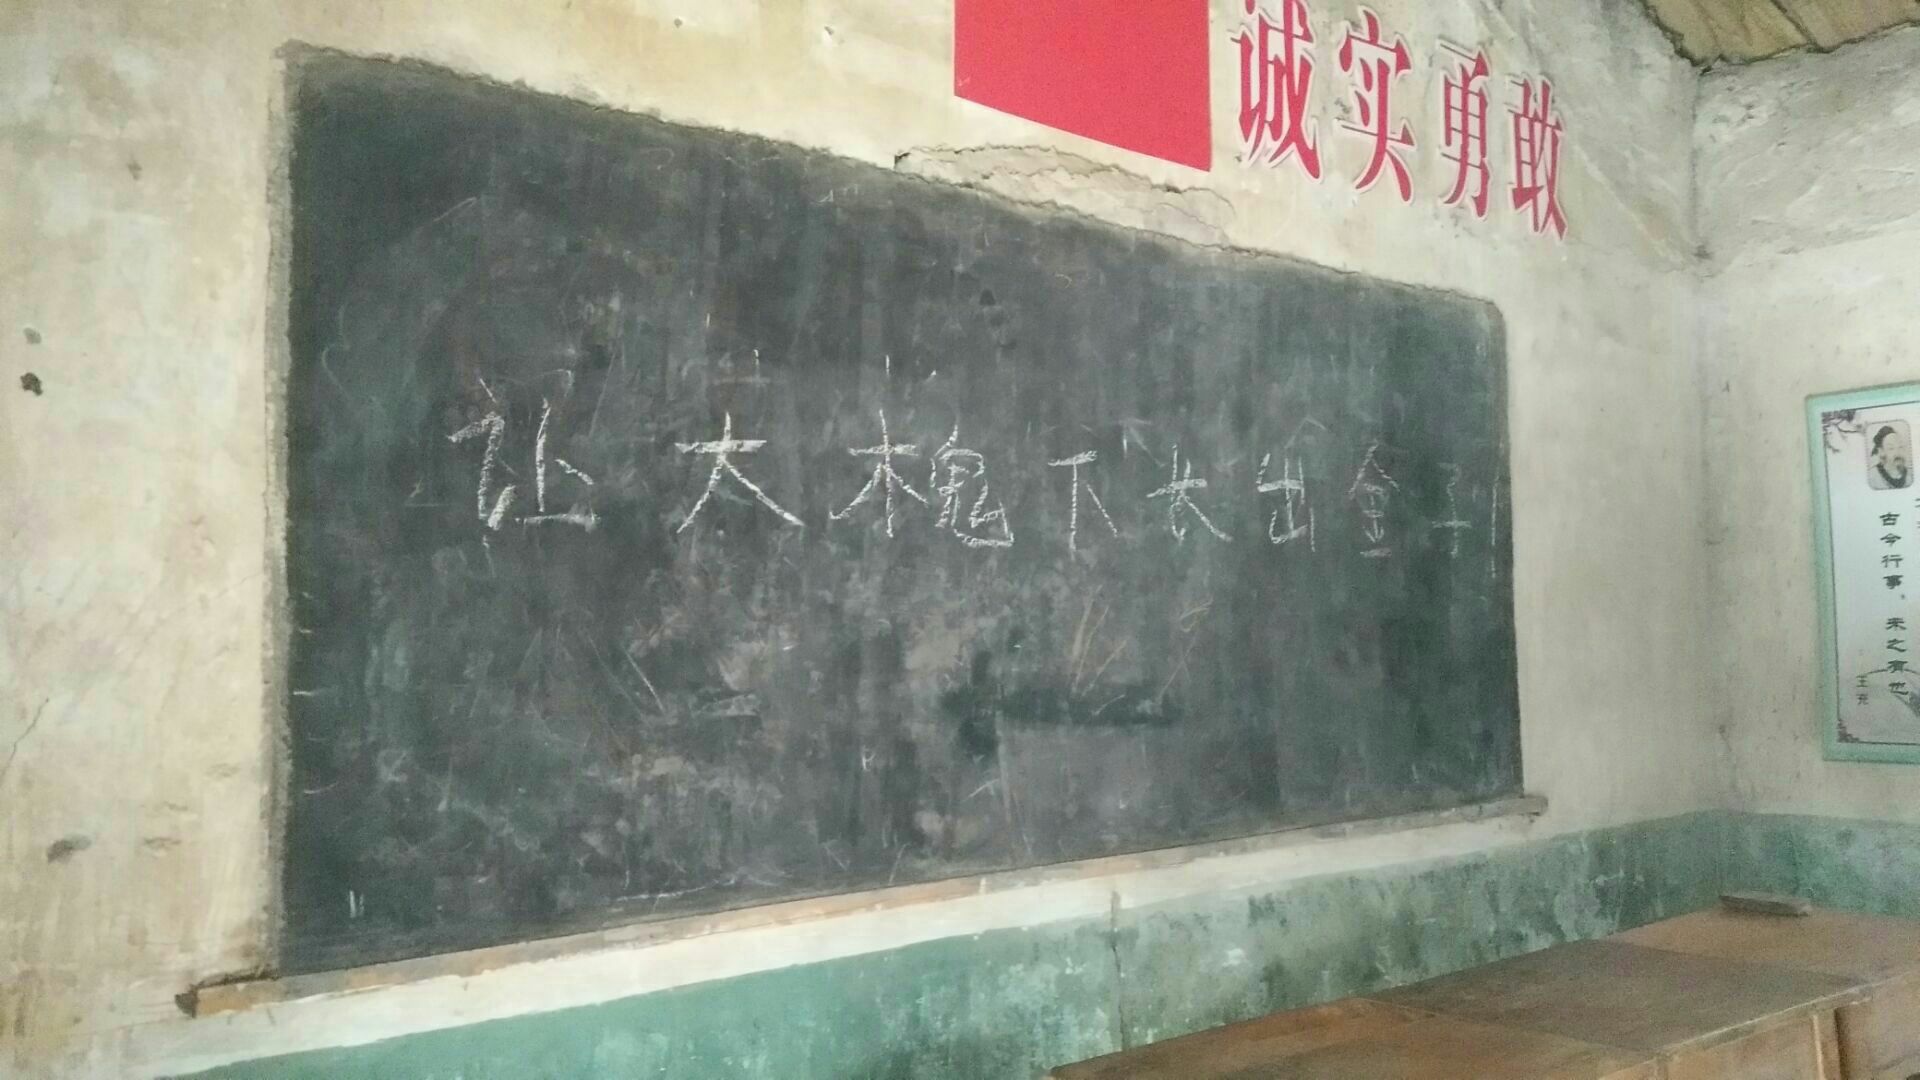 诚实勇敢
让大槐下长出金子
古今行事，未之有也
王充